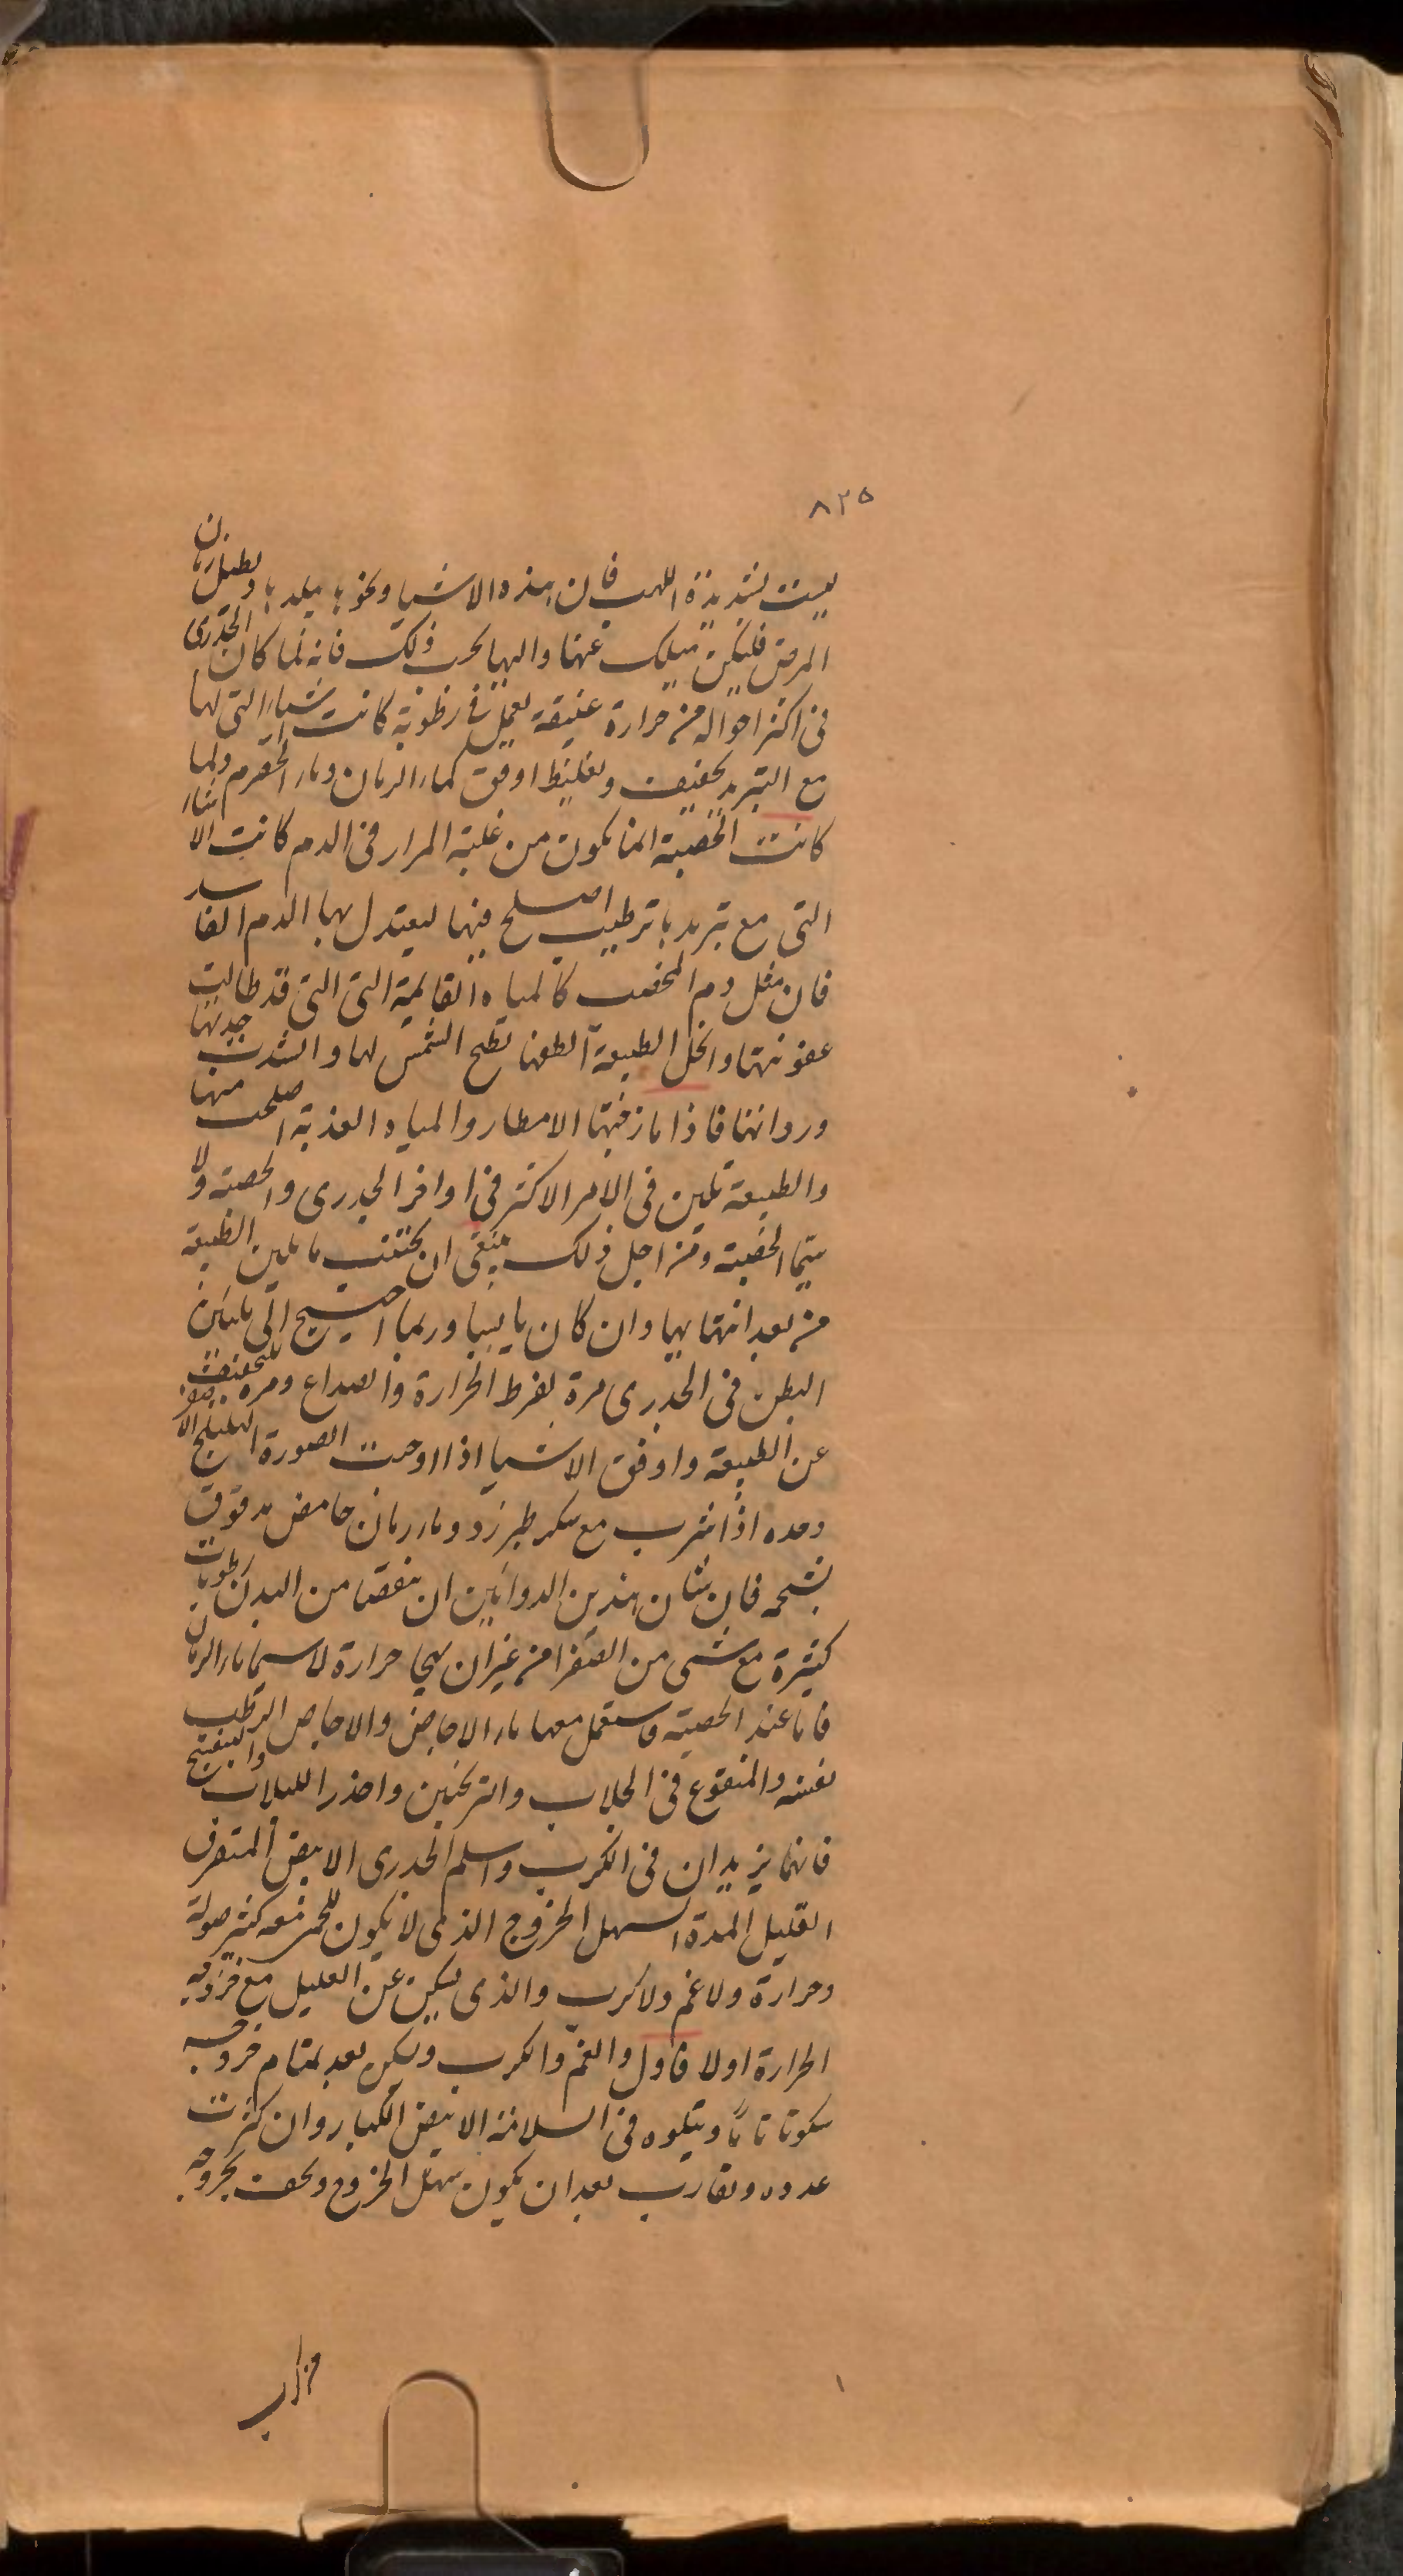 ٨٢٥
ليست شديدة اللهب فان هذه الاشيا ونحوها يبلدها ويطيل زمان
المرض فليكن ميلك عنها واليها بحسب ذلك فانه لما كان الجدرى
فى اكثر احواله من حرارة عنيفة تعمل فى رطوبة كانت الاشياء التى لها
مع التبريد تجفيف وتغليظ اوفق كماء الرمان وماء الحصرم ولما
كانت الحصبة انما تكون من غلبة المرار فى الدم كانت الاشياء
التى مع تبريدها ترطيب اصلح فيها ليعتدل بها الدم الفاسد
فان مثل دم المحصب كالمياه القائمة التى التى قد طالت
عفونتها وانحل الطبيعة الطفها بطبخ الشمس لها واشتدت حدتها
ورداتها فاذا مازجتها الامطار والمياه العذبة اصلحت منها
والطبيعة تلين فى الامر الاكثر فى اواخر الجدرى والحصبة ولا
سيما الحصبة ومن اجل ذلك ينبغى ان يجتنب ما يلين الطبيعة
من بعد انتهايها وان كان يابسا وربما احتيج الى تليين
البطن فى الجدرى مرة لفرط الحرارة والصداع ومرة للتخفيف
عن الطبيعة واوفق الاشيا اذا اوجبت الصورة الهليلج الاصفر
وحده اذا شرب مع سكر طبرزد وماء رمان حامض مدقوق
بشحمه فان شان هذين الدوائين ان ينفضا من البدن رطوبات
كثيرة مع شى من الصفرا من غير ان يهيجا حرارة لا سيما ماء الرمان
فاما عند الحصبة فاستعمل معها ماء الاجاص والاجاص الرطب
نفسه والمنقوع فى الجلاب والترنجبين واحذر اللبلاب والبنفسج
فانهما يزيدان فى الكرب واسلم الجدرى الابيض المتفرق
القليل المدة السهل الخروج الذى لا يكون للحمى معه كثير صولة
وحرارة ولا غم ولا كرب والذى يسكن عن العليل مع خروجه
الحرارة اولا فاول والغم والكرب ويسكن بعد بتمام خروجه
سكونا تاماً ويتلوه فى السلامة الابيض الكبار وان كثرت
عدده وتقارب بعد ان يكون سهل الخروج ويخف بخروجه